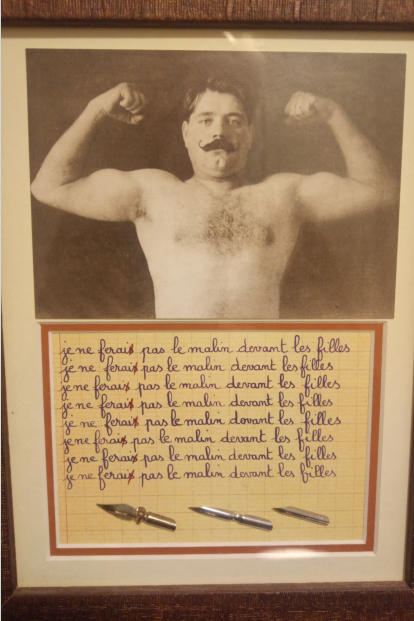 je ne ferais pas le malin devant les filles
je ne ferais pas le malin devant les filles
je ne ferais pas le malin devant les filles
je ne ferais pas le malin devant les filles
je ne ferais pas le malin devant les filles
je ne ferais pas le malin devant les filles
je ne ferais pas le malin devant les filles
je ne ferais pas le malin devant les filles